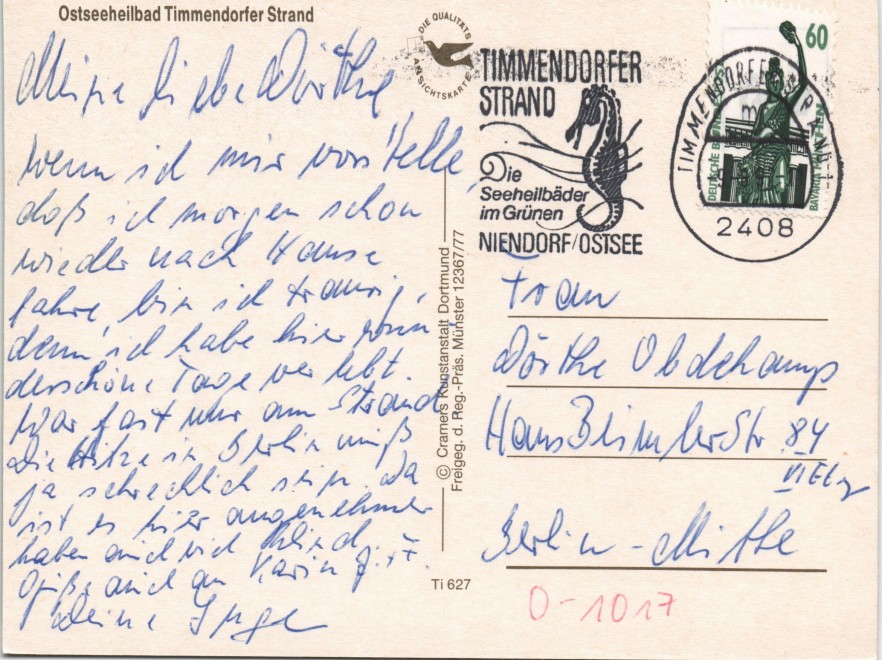 Ostseeheilbad Timmendorfer Strand
Meine liebe Dörthe
wenn ich mir vorstelle,
daß ich morgen schon
wieder nach Hause
fahre, bin ich traurig,
denn ich habe hier wun-
derschöne Tage verlebt.
War fast nur am Strand
Die Hitze in Berlin muß
ja schrecklich sein. Da
ist es hier angenehmer
haben auch viel Wind
Grüße auch an Karin
Deine Inge
DIE QUALITÄTS
ANSICHTSKARTE
TIMMENDORFER
STRAND
Die
Seeheilbäder
im Grünen
NIENDORF/OSTSEE
TIMMENDORFER STRAND 1
m
2408
60
DEUTSCHE BUNDESPOST
BAVARIA MÜNCHEN
© Cramers Kunstanstalt Dortmund
Freigeg. d. Reg.-Präs. Münster 12367/77
Ti 627
Frau
Dörthe Obdekamp
Hans Beimler Str 84
VI Etg
Berlin - Mitte
O-1017